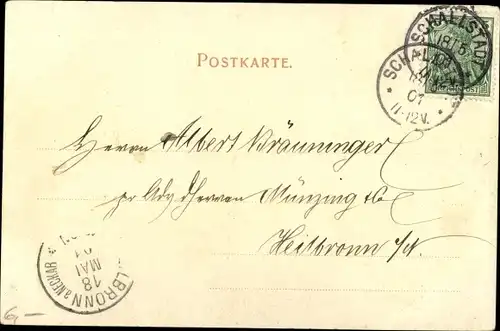 POSTKARTE.
SCHALLSTADT
18/5
SCHALLSTADT
01
11-12V.
Herrn Albert Bräuninger
pr Adr Herren Münzing & Co
Heilbronn a/N.
HEILBRONN a NECKAR
18
MAI
01
6,—